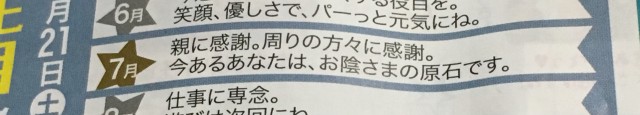 月
21
日
土
6月
笑顔、優しさで、パーっと元気にね。
7月
親に感謝。周りの方々に感謝。
今あるあなたは、お陰さまの原石です。
仕事に専念。